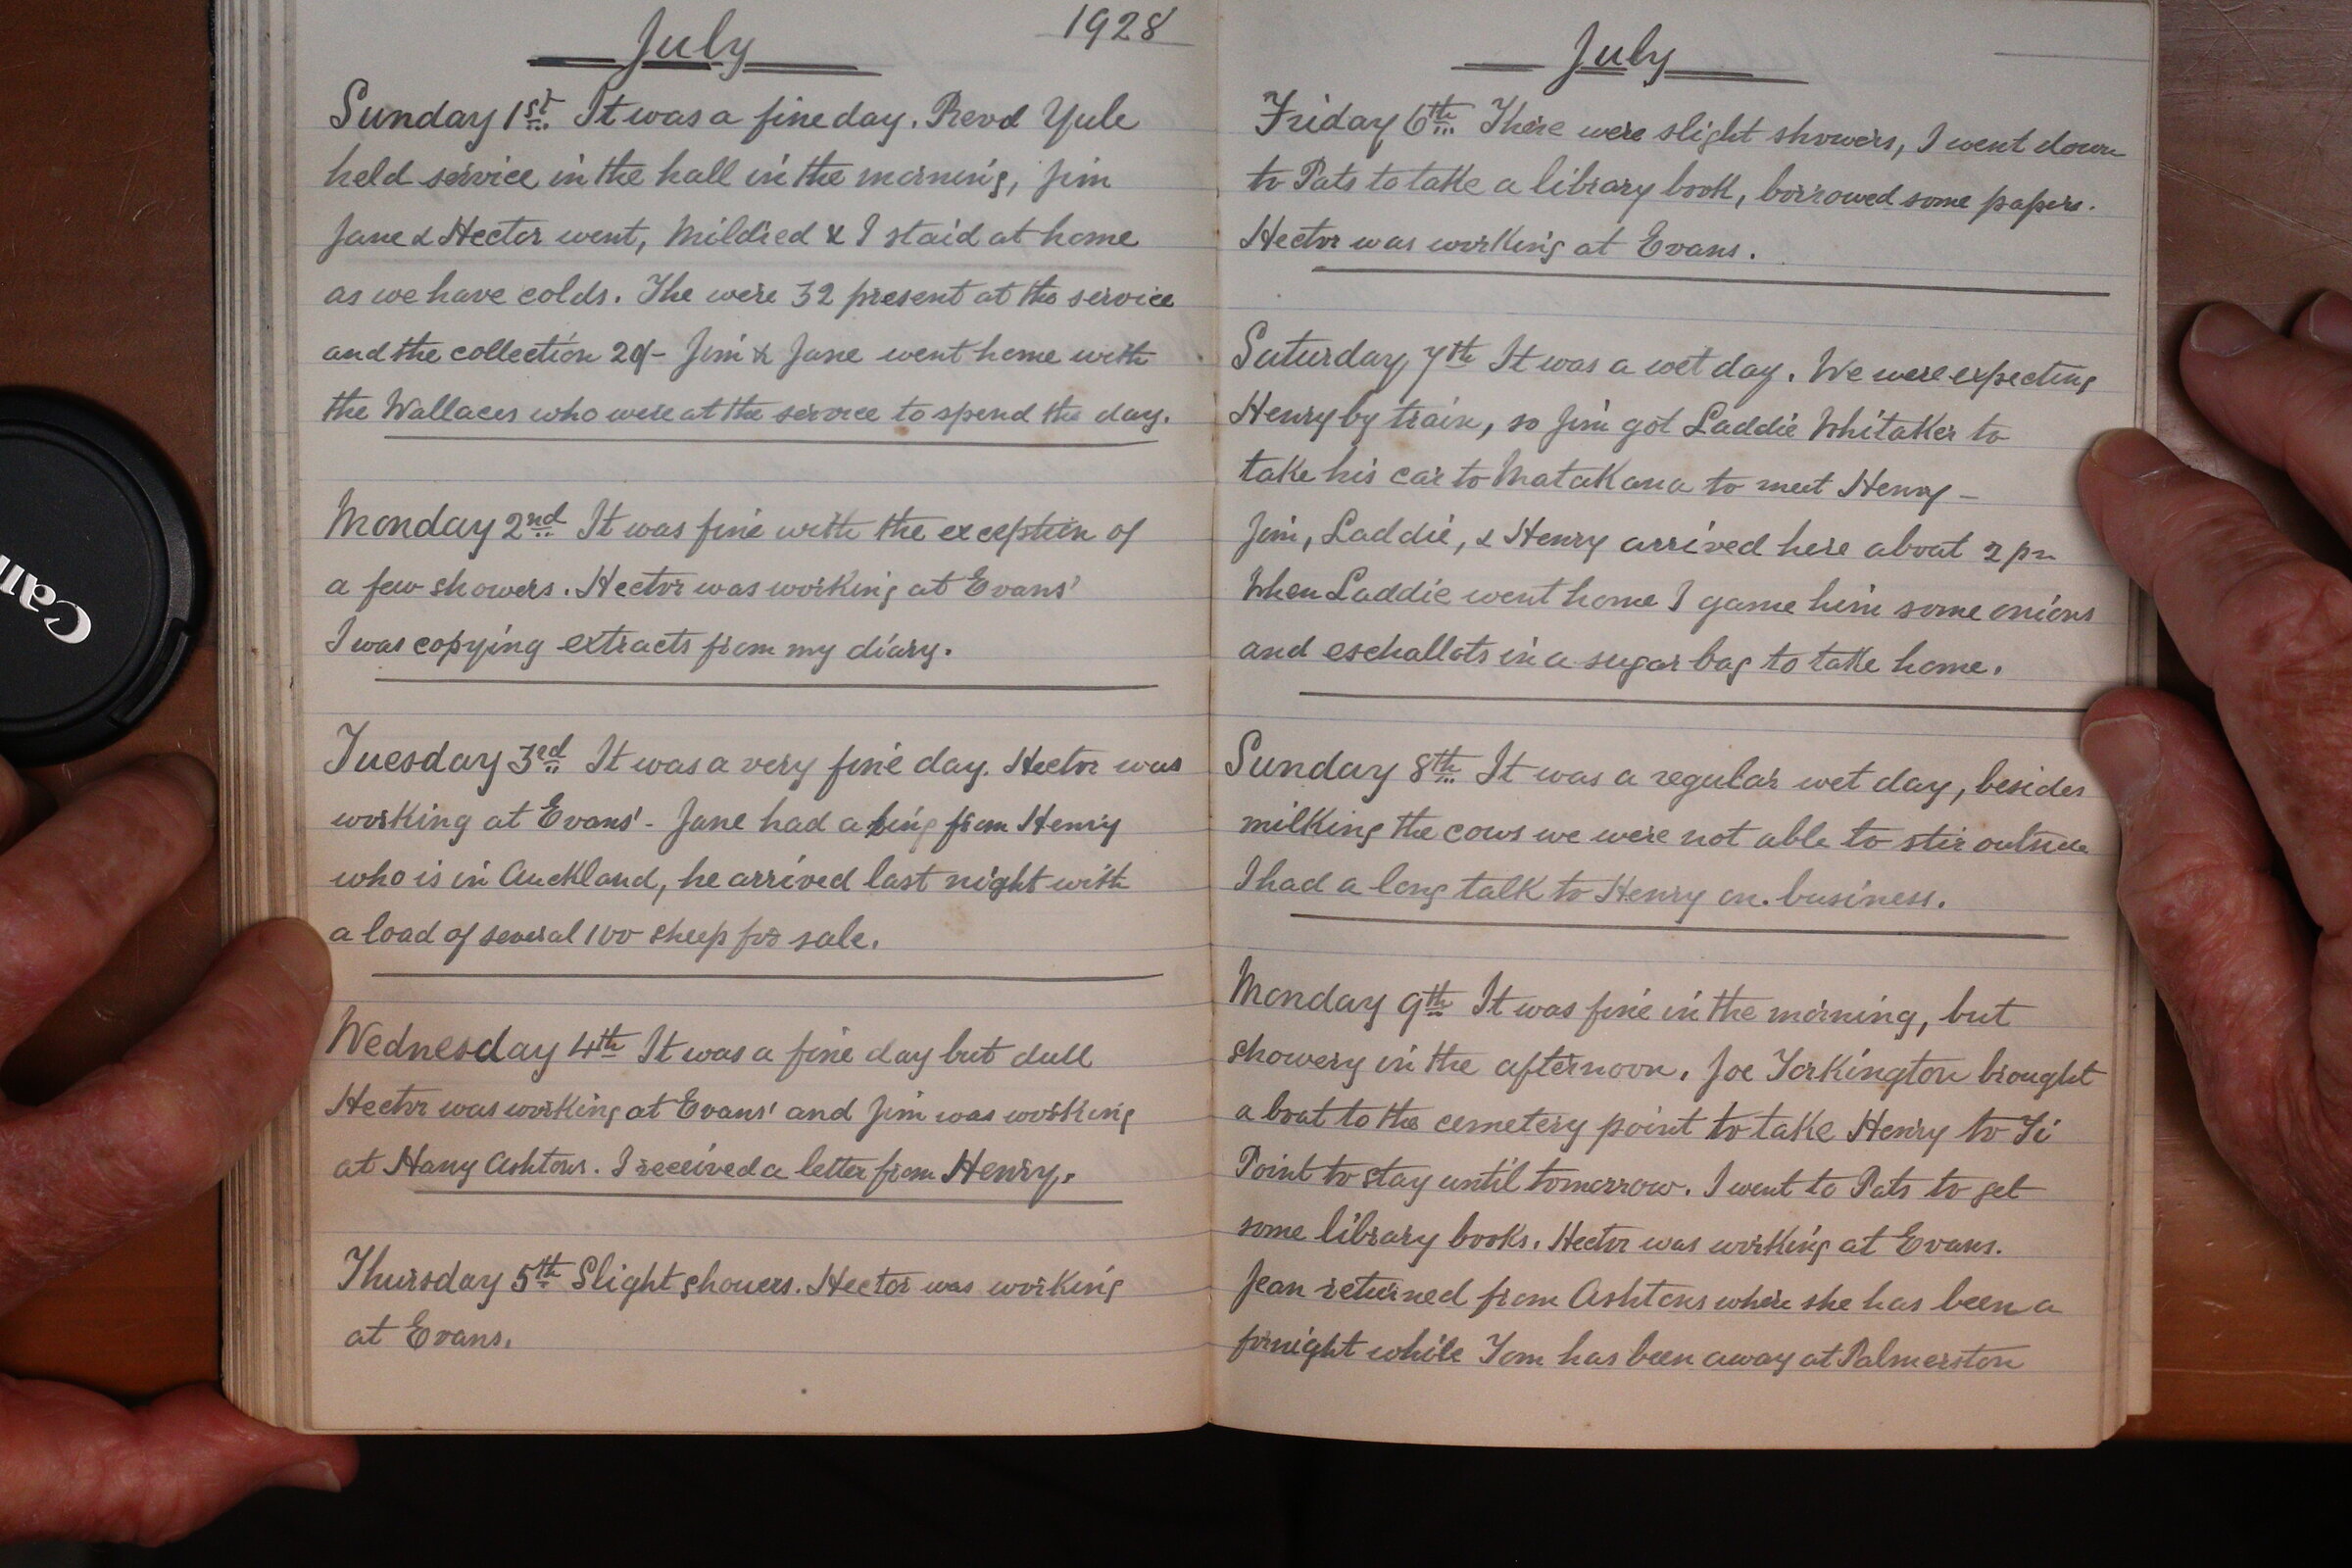 July 1928
Sunday 1st. It was a fine day. Revd Yule
held service in the hall in the morning, Jim
Jane & Hector went, Mildred & I staid at home
as we have colds. The were 32 present at the service
and the collection Jim & Jane went home with
the Wallaces who were at the service to spend the day.
Monday 2nd It was fine with the exception of
a few showers. Hector was working at Evans'
I was copying extracts from my diary.
Tuesday 3rd It was a very fine day. Hector was
working at Evans' - Jane had a ring from Henry
who is in Auckland, he arrived last night with
a load of several 100 sheep for sale.
Wednesday 4th It was a fine day but dull
Hector was working at Evans' and Jim was working
at Harry Ashtons. I received a letter from Henry.
Thursday 5th Slight showers. Hector was working
at Evans.
July
Friday 6th There were slight showers, I went down
to Pats to take a library book, borrowed some papers.
Hector was working at Evans.
Saturday 7th It was a wet day. We were expecting
Henry by train, so Jim got Laddie Whitaker to
take his car to Matakana to meet Henry -
Jim, Laddie, & Henry arrived here about 2 pm
When Laddie went home I game him some onions
and eschallots in a sugar bag to take home.
Sunday 8th It was a regular wet day, besides
milking the cows we were not able to stir outside
I had a long talk to Henry on. business.
Monday 9th It was fine in the morning, but
showery in the afternoon. Joe Torkington brought
a boat to the cemetery point to take Henry to Ti
Point to stay until tomorrow. I went to Pats to get
some library books. Hector was working at Evans.
Jean returned from Ashtons where she has been a
fornight while Tom has been away at Palmerston
Can